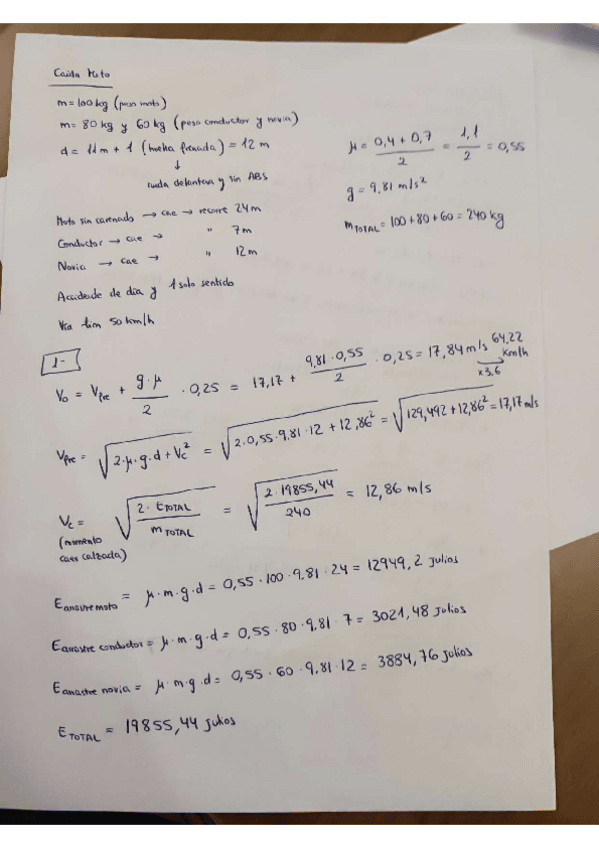 Caida Moto
m = 100 kg (peso moto)
m = 80 kg y 60 kg (peso conductor y novia)
d = 11 m + 1 (huella frenada) = 12 m
↓
rueda delantera y sin ABS
μ = (0,4 + 0,7)/2 = 1,1/2 = 0,55
g = 9,81 m/s²
m TOTAL = 100 + 80 + 60 = 240 kg
Moto sin carenado → cae → recorre 24 m
Conductor → cae → " 7 m
Novia → cae → " 12 m
Accidente de día y 1 solo sentido
Vía lim 50 km/h
1-
V₀ = V_fre + (g · μ)/2 · 0,25 = 17,17 + (9,81 · 0,55)/2 · 0,25 = 17,84 m/s 64,22 km/h
x 3,6
V_fre = √(2 · μ · g · d + V_c²) = √(2 · 0,55 · 9,81 · 12 + 12,86²) = √(129,492 + 12,86²) = 17,17 m/s
V_c = √((2 · E TOTAL)/(m TOTAL)) = √((2 · 19855,44)/240) = 12,86 m/s
(momento
caer calzada)
E arrastre moto = μ · m · g · d = 0,55 · 100 · 9,81 · 24 = 12949,2 Julios
E arrastre conductor = μ · m · g · d = 0,55 · 80 · 9,81 · 7 = 3021,48 Julios
E arrastre novia = μ · m · g · d = 0,55 · 60 · 9,81 · 12 = 3884,76 julios
E TOTAL = 19855,44 julios